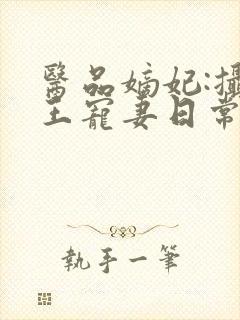 醫品嫡妃:攝
王寵妻日常
執手一筆